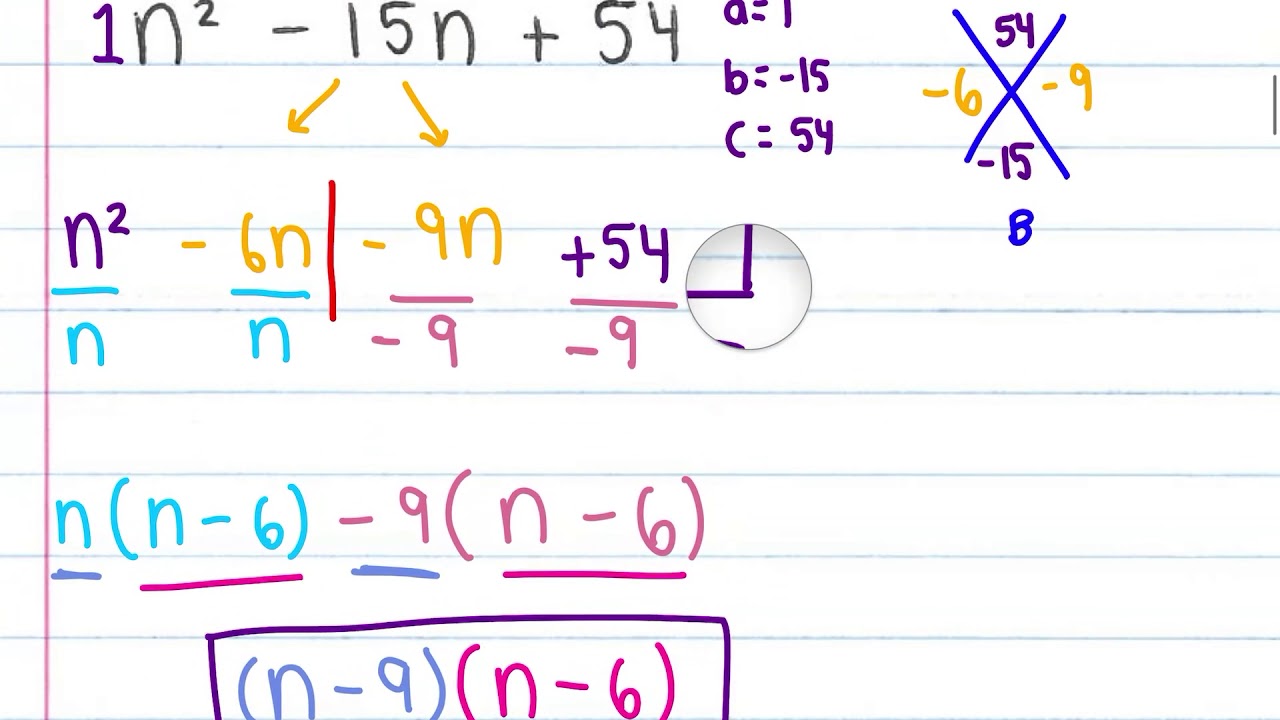 1n² - 15n + 54
a= 1
b= -15
c= 54
54
-6 -9
-15
B
n² - 6n | - 9n +54
n n -9 -9
n(n-6) -9(n-6)
(n-9)(n-6)